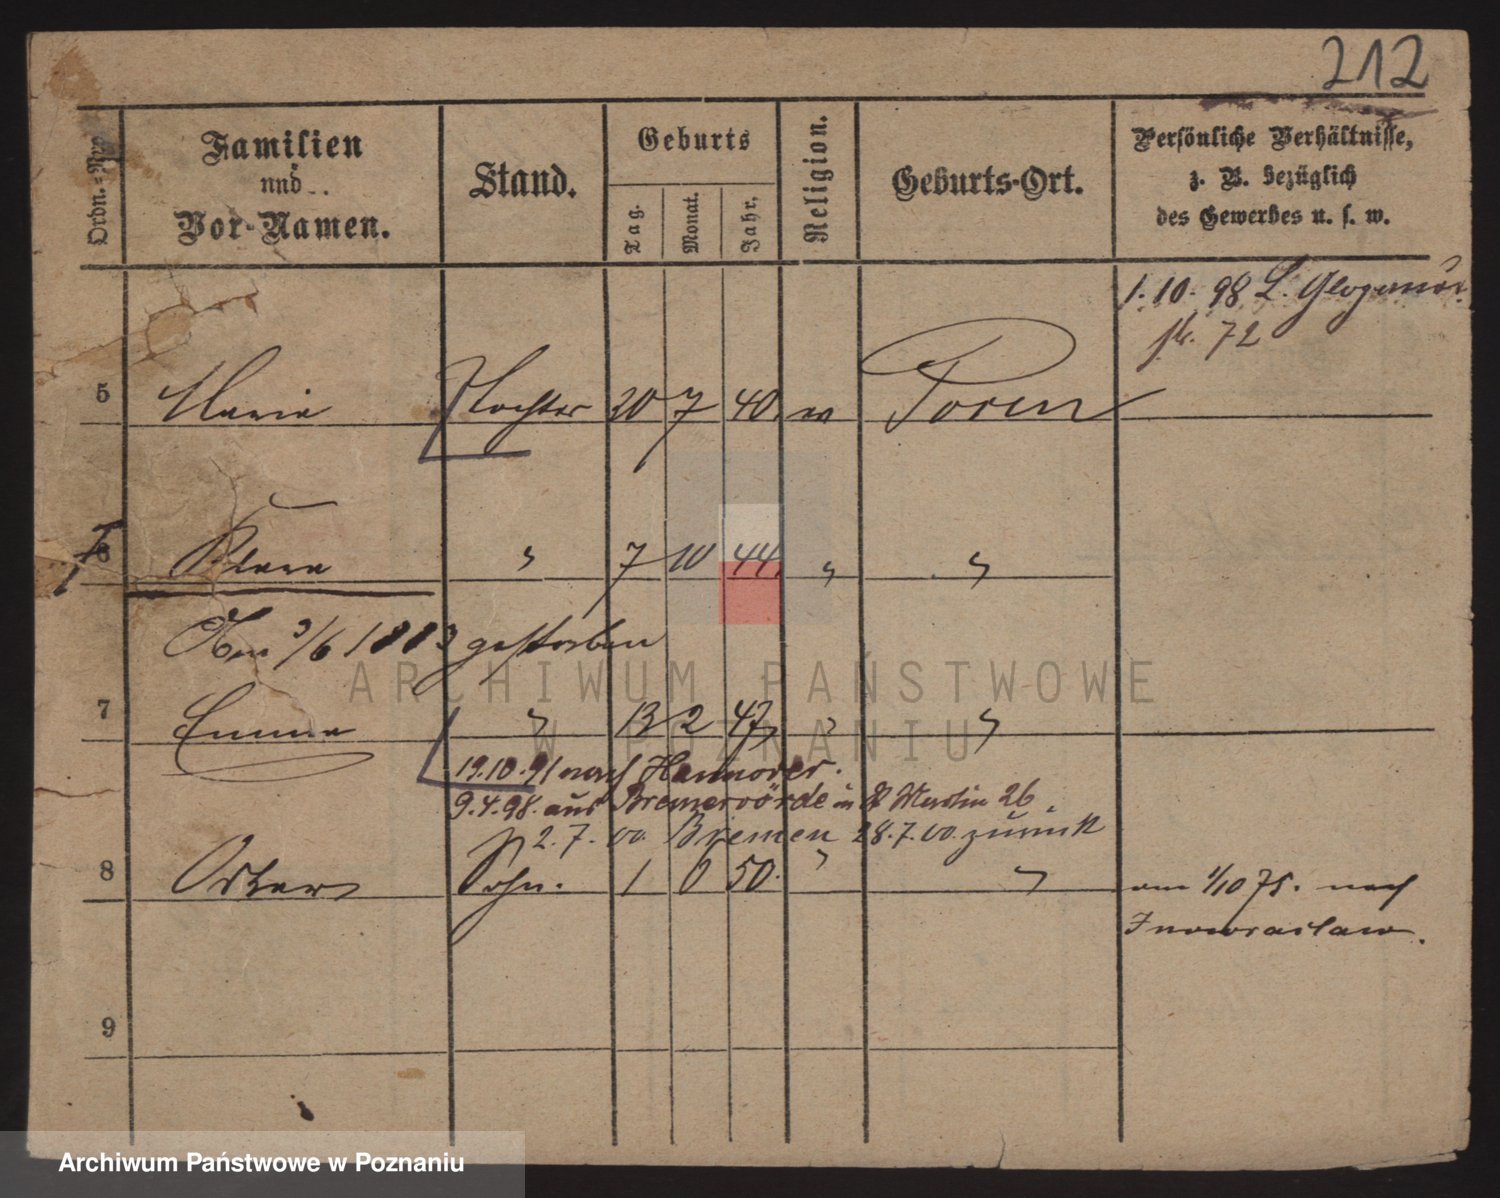 212
Ordn.=Nro
Familien
und
Vor-Namen.
Stand.
Geburts
Tag.
Monat.
Jahr.
Religion.
Geburts-Ort.
Persönliche Verhältnisse,
z. B. bezüglich
des Gewerbes u. s. w.
1. 10. 98 L.
str. 72
5 Marie Tochter 20 7 40. Posen
6 Klara " 7 10 44. " "
3/6 1883 gestorben
7 Emma " 13 2 47 " "
19.10.91 nach Hannover.
9.4.98. aus Bremervörde in St Martin 26
2.7.00. Bremen 28.7.00. zurück
8 Oskar Sohn. 1 6 50. " " am 1/10 75. nach
Inowraclaw.
9
ARCHIWUM PAŃSTWOWE
W POZNANIU
Archiwum Państwowe w Poznaniu